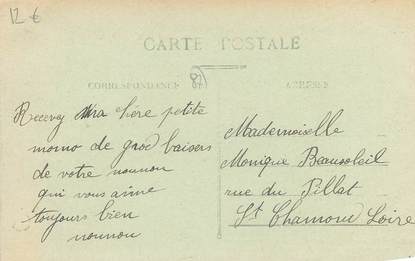 12 €
CARTE POSTALE
CORRESPONDANCE
ADRESSE
Recevez Ma chère petite
momo de gros baisers
de votre nounou
qui vous aime
toujours bien
nounou
Mademoiselle
Monique Beausoleil
rue du Pillat
St Chamond Loire